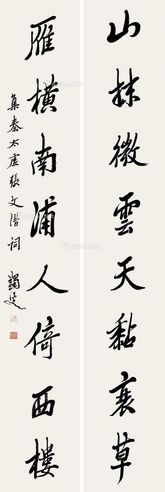 山抹微雲天黏衰草
雁橫南浦人倚西樓
集秦太虛張文潛詞